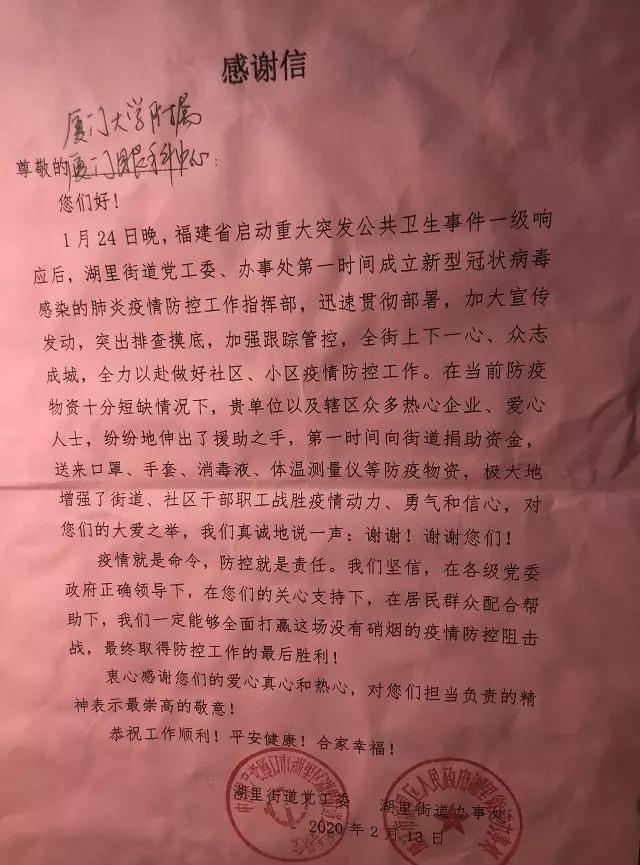 感谢信
厦门大学附属
尊敬的厦门眼科中心：
您们好！
1月24日晚，福建省启动重大突发公共卫生事件一级响
应后，湖里街道党工委、办事处第一时间成立新型冠状病毒
感染的肺炎疫情防控工作指挥部，迅速贯彻部署，加大宣传
发动，突出排查摸底，加强跟踪管控，全街上下一心、众志
成城，全力以赴做好社区、小区疫情防控工作。在当前防疫
物资十分短缺情况下，贵单位以及辖区众多热心企业、爱心
人士，纷纷地伸出了援助之手，第一时间向街道捐助资金，
送来口罩、手套、消毒液、体温测量仪等防疫物资，极大地
增强了街道、社区干部职工战胜疫情动力、勇气和信心，对
您们的大爱之举，我们真诚地说一声：谢谢！谢谢您们！
疫情就是命令，防控就是责任。我们坚信，在各级党委
政府正确领导下，在您们的关心支持下，在居民群众配合帮
助下，我们一定能够全面打赢这场没有硝烟的疫情防控阻击
战，最终取得防控工作的最后胜利！
衷心感谢您们的爱心真心和热心，对您们担当负责的精
神表示最崇高的敬意！
恭祝工作顺利！平安健康！合家幸福！
湖里街道党工委 湖里街道办事处
2020年2月13日